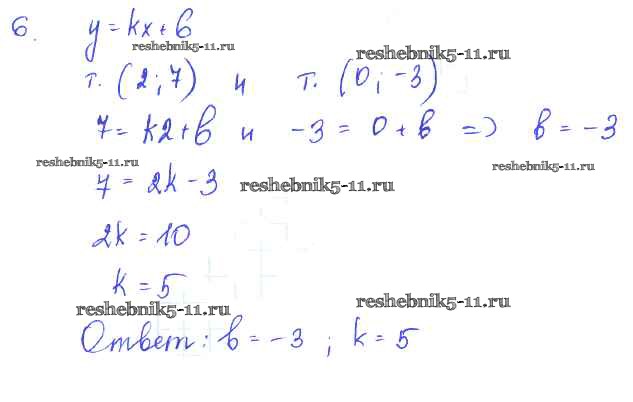 6. y = kx + b
reshebnik5-11.ru
reshebnik5-11.ru
т. (2; 7) и т. (0; -3)
7 = k2 + b и -3 = 0 + b => b = -3
reshebnik5-11.ru
reshebnik5-11.ru
7 = 2k - 3
reshebnik5-11.ru
2k = 10
k = 5
reshebnik5-11.ru
reshebnik5-11.ru
Ответ: b = -3 ; k = 5